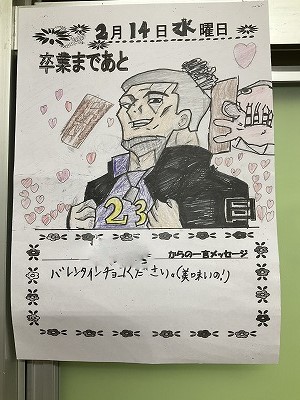 2月14日水曜日
卒業まであと
23
からの一言メッセージ
バレンタインチョコください。(美味いの!)